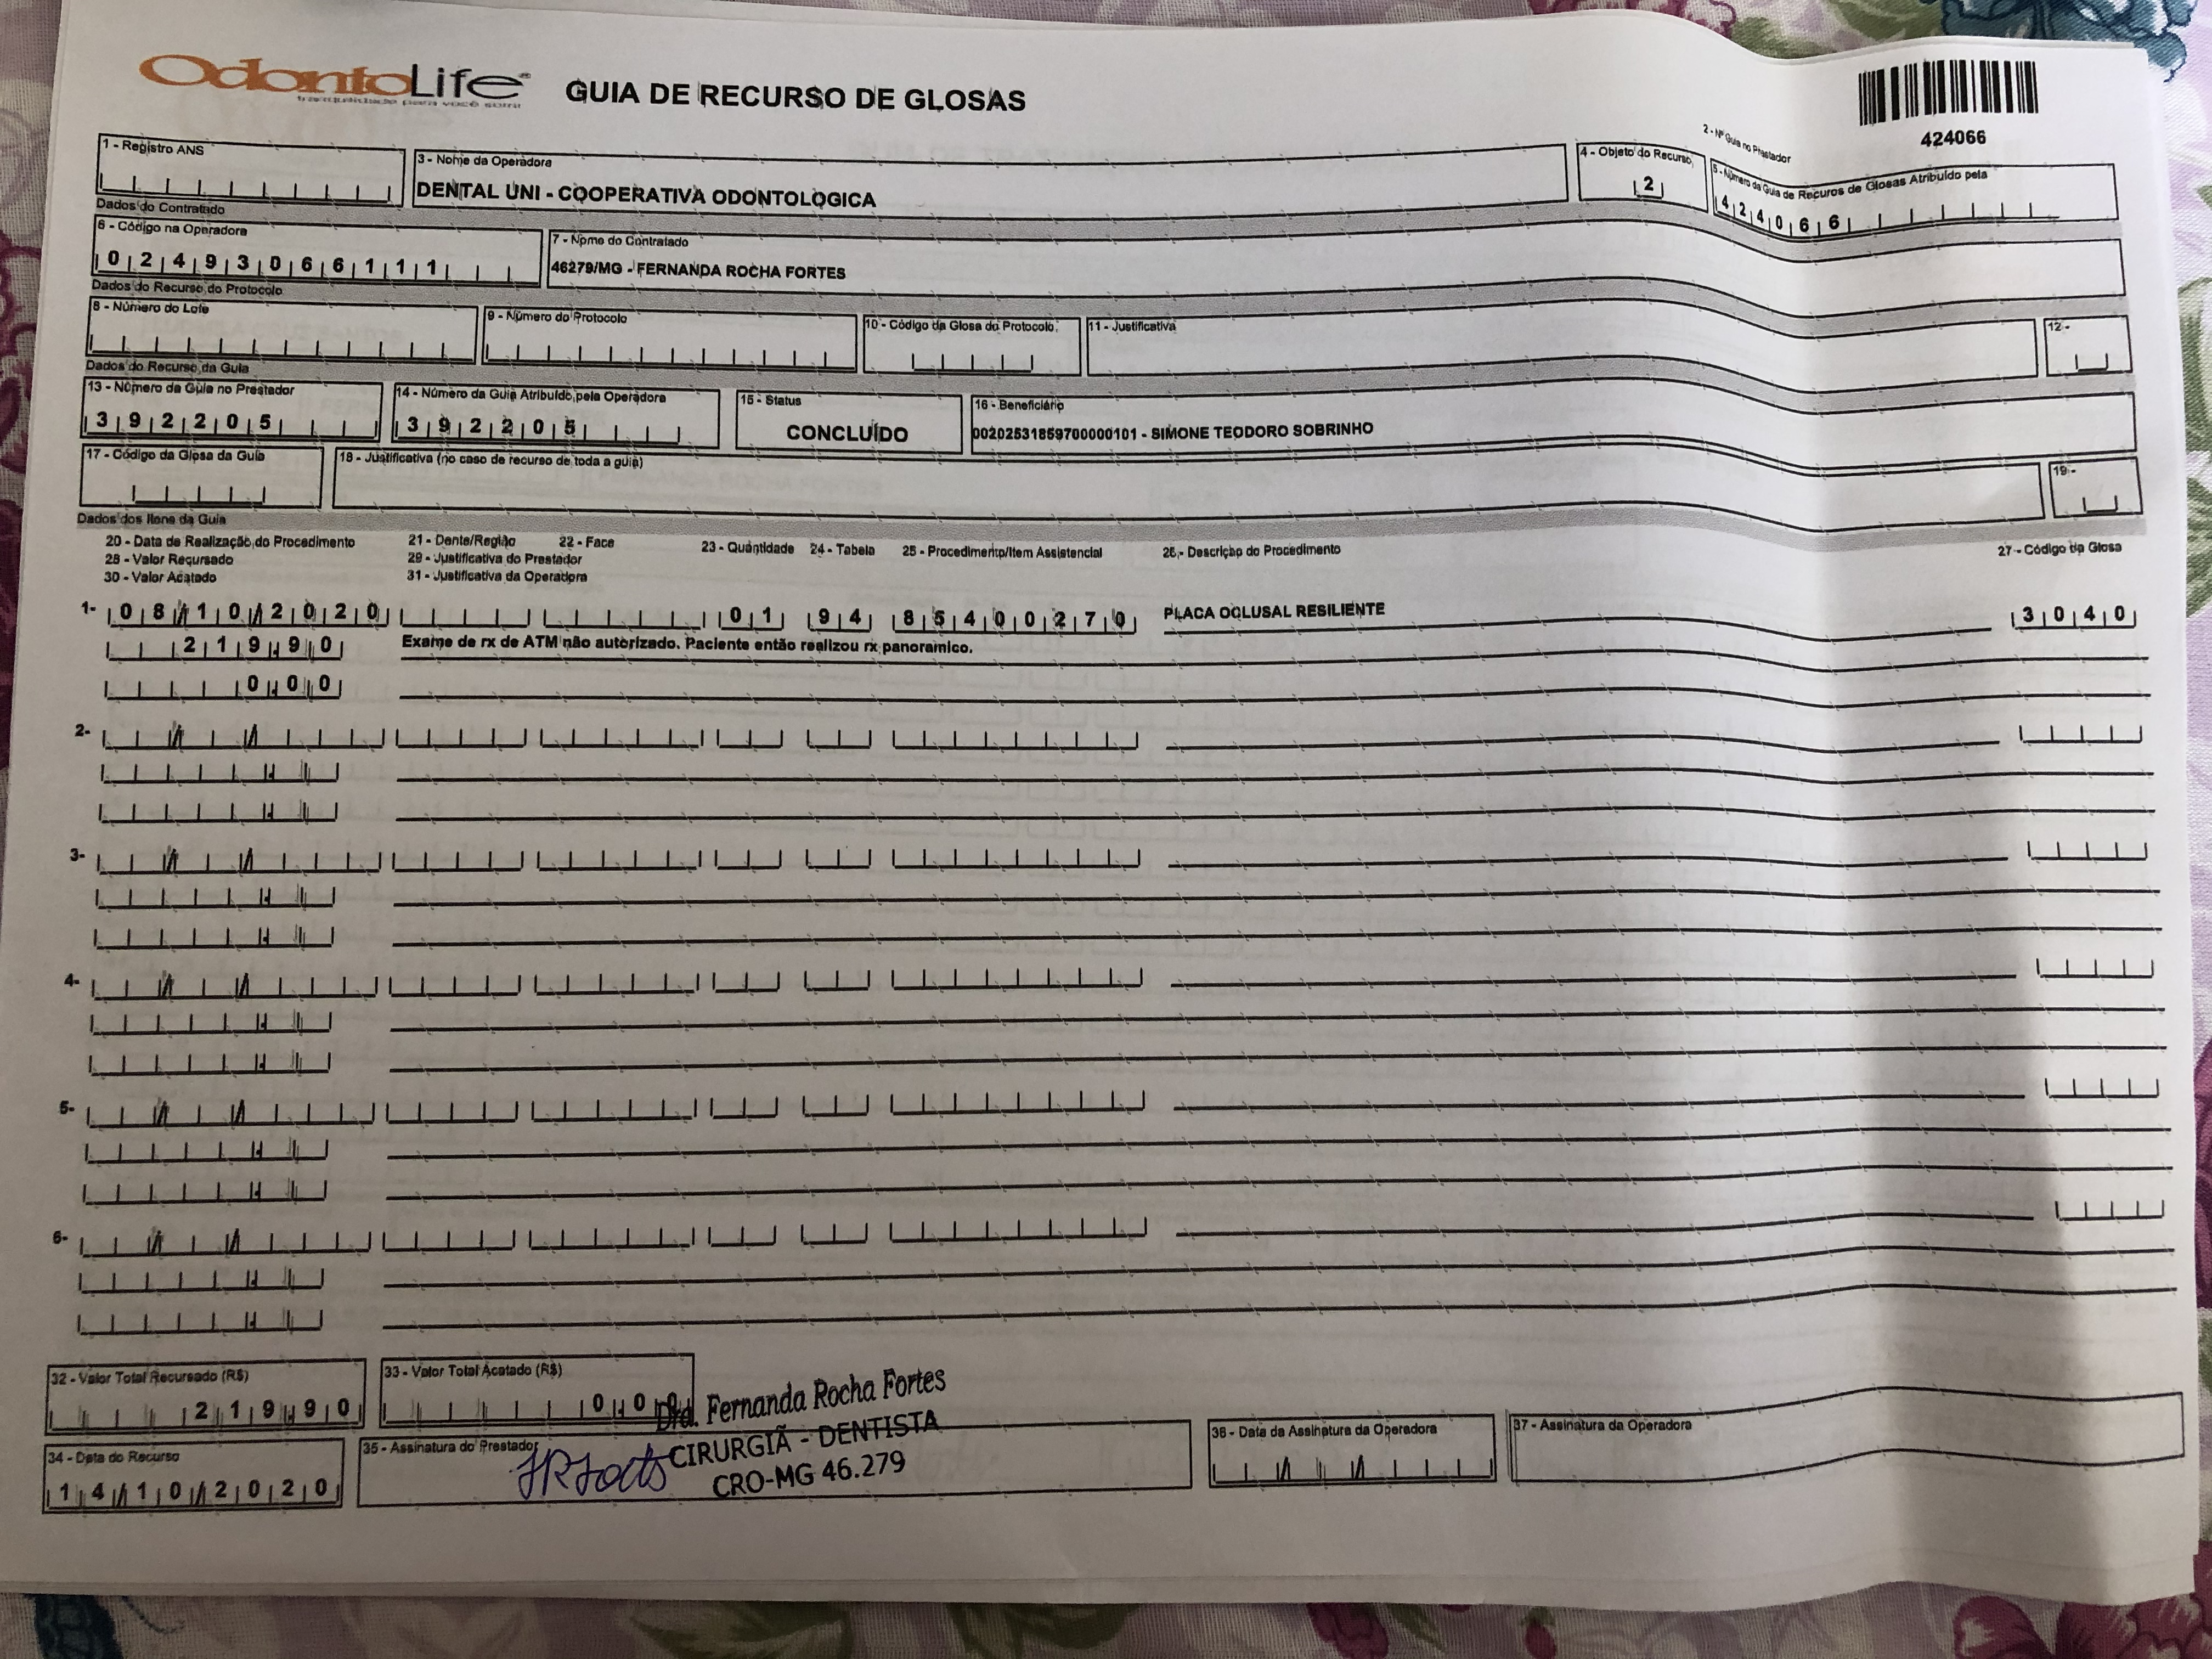 OdontoLife®
tranquilidade para você sorrir
GUIA DE RECURSO DE GLOSAS
2 - Nº Guia no Prestador
424066
1 - Registro ANS
3 - Nome da Operadora
DENTAL UNI - COOPERATIVA ODONTOLOGICA
4 - Objeto do Recurso
2
5 - Número da Guia de Recuros de Glosas Atribuído pela
424066
Dados do Contratado
6 - Código na Operadora
02493066111
7 - Nome do Contratado
46279/MG - FERNANDA ROCHA FORTES
Dados do Recurso do Protocolo
8 - Número do Lote
9 - Número do Protocolo
10 - Código da Glosa do Protocolo
11 - Justificativa
12 -
Dados do Recurso da Guia
13 - Número da Guia no Prestador
392205
14 - Número da Guia Atribuído pela Operadora
392205
15 - Status
CONCLUÍDO
16 - Beneficiário
00202531859700000101 - SIMONE TEODORO SOBRINHO
17 - Código da Glosa da Guia
18 - Justificativa (no caso de recurso de toda a guia)
19 -
Dados dos Itens da Guia
20 - Data de Realização do Procedimento 21 - Dente/Região 22 - Face 23 - Quantidade 24 - Tabela 25 - Procedimento/Item Assistencial 26 - Descrição do Procedimento 27 - Código da Glosa
28 - Valor Recursado 29 - Justificativa do Prestador
30 - Valor Acatado 31 - Justificativa da Operadora
1- 08/10/2020 01 94 85400270 PLACA OCLUSAL RESILIENTE 3040
219,90 Exame de rx de ATM não autorizado. Paciente então realizou rx panoramico.
0,00
2-
3-
4-
5-
6-
32 - Valor Total Recursado (R$)
219,90
33 - Valor Total Acatado (R$)
0,00
34 - Data do Recurso
14/10/2020
35 - Assinatura do Prestador
Dra. Fernanda Rocha Fortes
CIRURGIÃ - DENTISTA
CRO-MG 46.279
36 - Data da Assinatura da Operadora
37 - Assinatura da Operadora